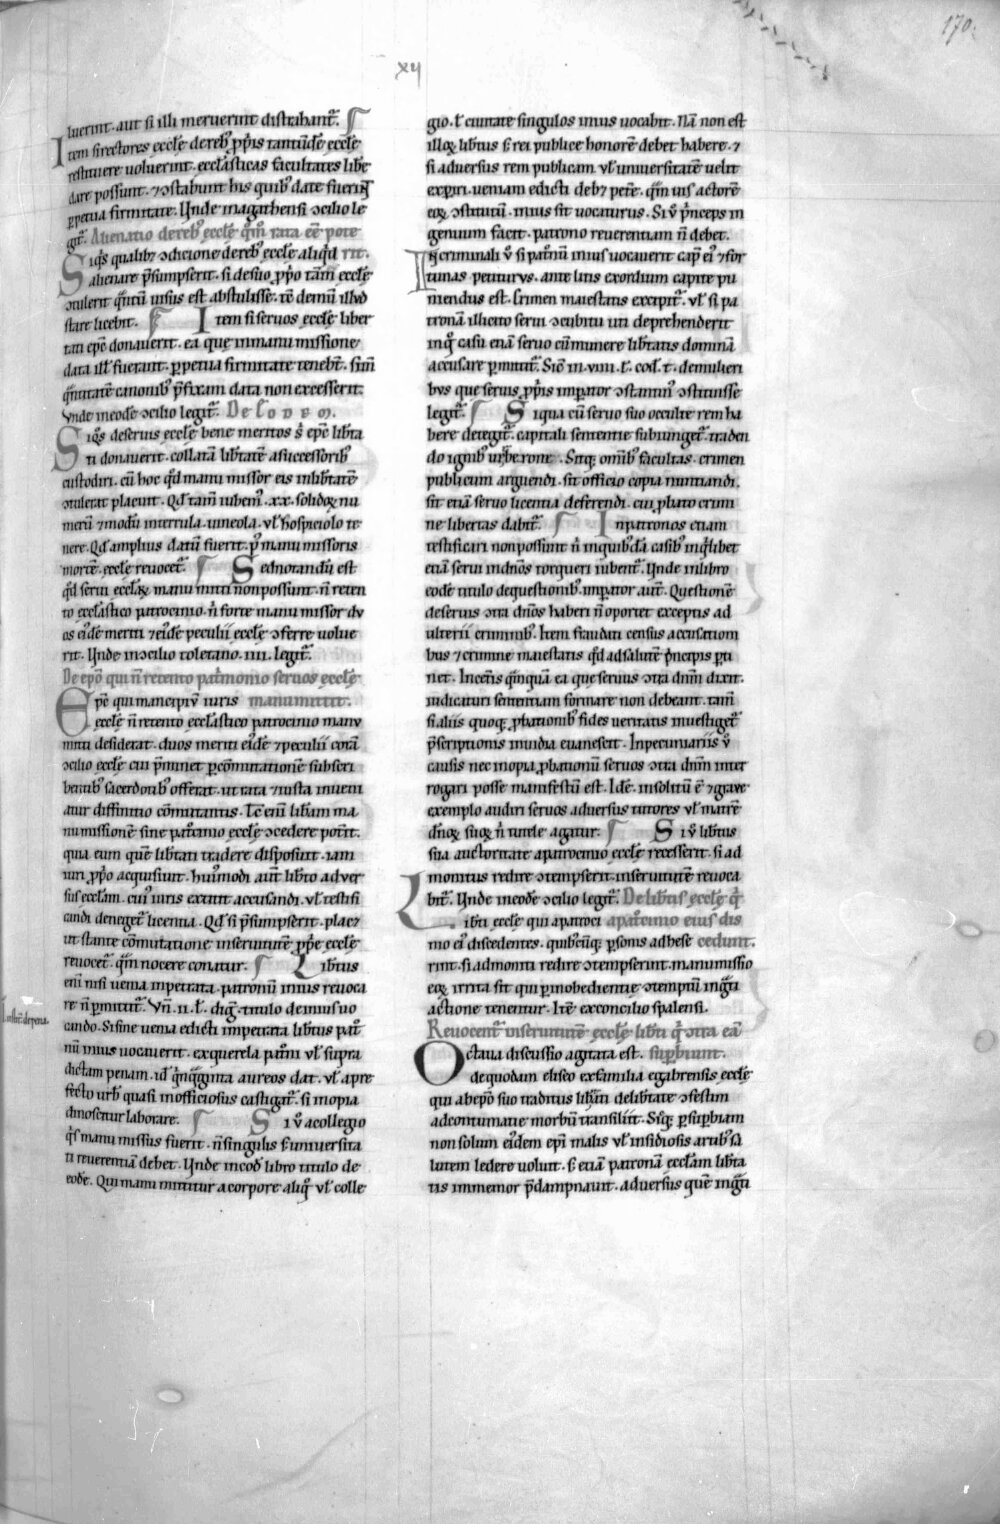 170.
xij
luerint. aut si illi meruerint distrahant᷑.
Item si rectores eccl̄e de reb; p̱p̱is tantūdē eccl̄e
restituere uoluerint. eccl̄asticas facultates libe
dare possunt. ⁊ ɔstabunt his quib; date fuerīt
ꝑpetua firmitate. Vnde in agathensi ɔcilio le
git᷑. Alienatio de reb; eccl̄e q̄m̄ rata eē pote
Siq̄s qualib; ɔdicione de reb; eccl̄e aliq̄d rit.
alienare p̄sumpserit. si de suo ꝓp̱o tātū eccl̄e
ɔtulerit q̄ntū uisus est abstulisse. tē demū illud
stare licebit. Item si seruos eccl̄e liber
tati ep̄c donauerit. ea que in manu missione
data ill̄ fuerant. ꝑpetua firmitate tenebt᷑. si m̄
q̄ntitatē canonib; p̄fixam data non excesserit.
Vnde in eodē ɔcilio legit᷑. De eodem.
Siq̄s de seruis eccl̄e bene meritos s; ep̄c lib̄ta
ti donauerit. collatā lib̄tatē a successorib;
custodiri. cū hoc q̄d manu missor eis in lib̄tatē
ɔtulerat placuit. Qd̄ tam̄ iubem; .xx. solidoꝝ nu
merū ⁊ modū in terrula. uineola. ul̄ hospiciolo te
nere. Qd̄ amplius datū fuerit. p̄ manu missoris
mortē. eccl̄e reuocet᷑. Sed notandū est
q̄d serui eccl̄aꝝ manu mitti non possunt. n̄ reten
to eccl̄astico patrocinio. n̄ forte manu missor du
os ei;dē meriti ⁊ ei;dē peculii eccl̄e ɔferre uolue
rit. Vnde in ɔcilio toletano .iiii. legit᷑.
De ep̄o qui n̄ retento pat̄monio seruos eccl̄e
Ep̄c qui mancipiū iuris manumittit.
eccl̄e n̄ retento eccl̄astico patrocinio manu
mitti desiderat. duos meriti ei;dē ⁊ peculii corā
ɔcilio eccl̄e cui p̄minet ꝑ cōmutationē subscri
bentib; sacerdotib; offerat. ut rata ⁊ iusta inueni
atur diffinitio cōmutantis. Tc̄ eni lib̄am ma
numissionē sine pat̄cinio eccl̄e ɔcedere pot̄it.
quia eum quē lib̄tati tradere disposuit. iam
iuri ꝓp̱o acquisiuit. hui;modi aut̄ lib̄to aduer
sus eccl̄am. cui; iuris extitit accusandi. ul̄ testifi
candi deneget᷑ licentia. Qd̄ si p̄sumpserit. plac;
ut stante cōmutatione in seruitutē p̱p̱e eccl̄e
reuocet᷑. q̄m nocere conatur. Libtus
eni nisi uenia impetrata. patronū in ius reuoca
re n̄ ꝑmittit᷑. Vn̄ .ii. l̄. dig᷑. titulo de in ius uo
cando. Si sine uenia edicti impetrata libtus pat̄
nū in ius uocauerit. ex querela pat̄ni ul̄ supra
dictam penam. id̄ q̄nq̄ginta aureos dat. ul̄ a pre
fecto urb; quasi inofficiosus castigat᷑. si inopia
dinoscitur laborare. Si ū a collegio
q̄s manu missus fuerit. n̄ singulis s; uniuersita
ti reuerentiā debet. Vnde in eod̄ libro titulo de
eodē. Qui manu mittitur a corpore aliq̄ ul̄ colle
gio. l̄ ciuitate singulos in ius uocabit. Nā non est
illoꝝ libtus s; rei publice honorē debet habere. ⁊
si aduersus rem publicam ul̄ uniuersitatē uelit
exꝑiri. ueniam edicti deb; petē. q̄m̄ uis actorē
eoꝝ ɔstitutū. in ius sit uocaturus. Si ū p̄nceps in
genuum facit. patrono reuerentiam n̄ debet.
In criminali ū si pat̄nū in ius uocauerit cap; ei; ⁊ for
tunas petiturus. ante litis exordium capite pu
niendus est. Crimen maiestatis excipit᷑. ul̄ si pa
tronā illicito serui ɔcubitu uti deprehenderit
in q̄ casu etiā seruo cū munere lib̄tatis dominā
accusare ꝑmittit᷑. Sic̄ in .viiii. l̄. cod̄. t̄. de mulieri
bus que seruis ꝓp̱is imꝑator ɔstantin; ɔstituisse
legit᷑. Si qua cū seruo suo occulte rem ha
bere detegit᷑. capitali sententie subiunget᷑. traden
do ignib; uerberone. Sitq; om̄ib; facultas. crimen
publicum arguendi. sit officio copia nuntiandi.
sit etiā seruo licentia deferendi. cui ꝓbato crimi
ne libertas dabit᷑. In patronos etiam
testificari non possunt n̄ in quib;dā casib; in q̄libet
etiā serui in dn̄os torqueri iubent᷑. Vnde in libro
eodē titulo de questionib; imꝑator aut̄. Questionē
de seruis ɔtra dn̄os haberi n̄ oportet exceptis ad
ulterii criminib;. Item fraudati census accusation
bus ⁊ crimine maiestatis q̄d ad salutē p̄ncipis ꝑti
net. In cet̄is q̄nquā ea que seruus ɔtra dnm̄ dixit.
iudicaturi sententiam formare non debeant. tam̄
si aliis quoq; ꝓbationib; fides ueritatis inuestiget᷑
p̄scriptionis inuidia euanescit. In pecuniariis ū
causis nec inopia ꝓbationū seruos ɔtra dnm̄ inter
rogari posse manifestū est. Idē. insolitū ē ⁊ graue
exemplo audiri seruos aduersus tutores ul̄ matrē
dn̄oꝝ suoꝝ n̄ tutele agatur. Si ū libtus
sua auctoritate a patrocinio eccl̄e recesserit. si ad
monitus redire ɔtempserit. in seruitutē reuoca
bit᷑. Vnde in eodē ɔcilio legit᷑. De lib̄tis eccl̄e q̄
Lib̄ti eccl̄e qui a patroci a pat̄cinio eius dis
nio ei; discedentes. quib;cūq; ꝑsonis adhese cedunt.
rint. si admoniti redire ɔtempserint. manumissio
eoꝝ irrita sit qui ꝑ inobedientie ɔtemptū ingr̄ti
actione tenentur. Itē. ex concilio spalensi.
Reuocent᷑ in seruitutē eccl̄e lib̄ti q̄ ɔtra eā
Octaua discussio agitata est. suꝑbiunt.
de quodam eliseo ex familia egabrensis eccl̄e
qui ab ep̄o suo traditus lib̄tati de lib̄tate ɔfestim
ad contumatie morbū transiliit. Siq; ꝑ suꝑbiam
non solum ei;dem ep̄i malis ul̄ insidiosis artib; sa
lutem ledere voluit. s; etiā patronā eccl̄am lib̄ta
tis immemor p̄dampnauit. aduersus quē ingr̄ti